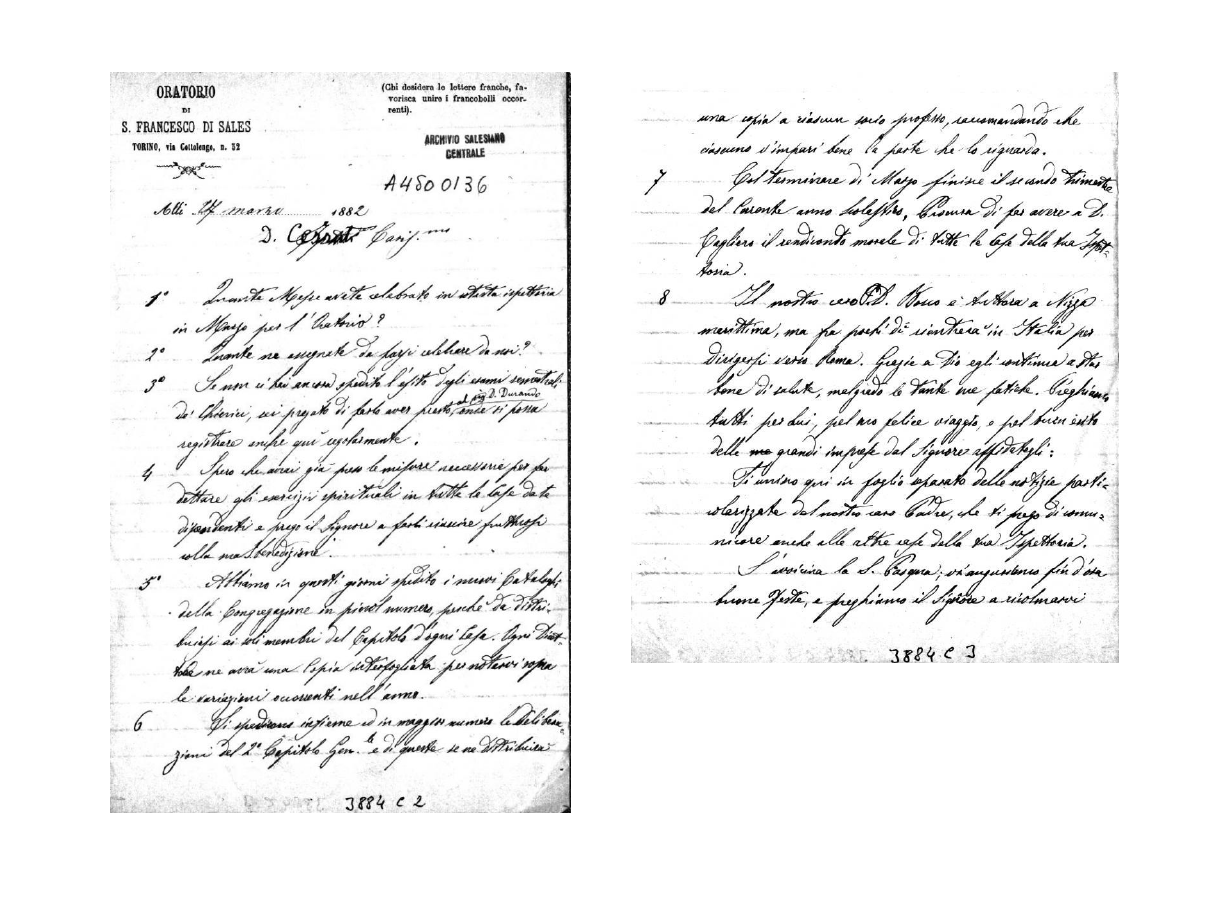 ORATORIO
DI
S. FRANCESCO DI SALES
TORINO, via Cottolengo, n. 32
(Chi desidera le lettere franche, fa-
vorisca unire i francobolli occor-
renti).
ARCHIVIO SALESIANO
CENTRALE
A4500136
Alli 27 marzo 1882
D. Cariss.mo
1° Quante Messe avete celebrato in cotesta ispettoria
in Marzo per l'Oratorio?
2° Quante ne assegnate da farsi celebrare da noi?
3° Se non ci hai ancora spedito l'esito degli esami semestrali
de' Chierici, sei pregato di farlo aver presto, al sig. D. Durando onde si possa
registrare anche qui regolarmente.
4 Spero che avrai già preso le misure necessarie per far
dettare gli esercizii spirituali in tutte le Case da te
dipendenti e prego il Signore a farli riuscire fruttuosi
colla sua S. benedizione.
5° Abbiamo in questi giorni spedito i nuovi Cataloghi
della Congregazione in piccol numero, perché da distri-
buirsi ai soli membri del Capitolo d'ogni Casa. Ogni Diret-
tore ne avrà una Copia interfogliata per notarvi sopra
le variazioni occorrenti nell'anno.
6 Si spedirono insieme ed in maggior numero le Delibera-
zioni del 2° Capitolo Gen.le e di queste se ne distribuisca
3884 C 2
una copia a ciascun socio professo, raccomandando che
ciascuno s'impari bene la parte che lo riguarda.
7 Col terminare di Marzo finisce il secondo trimestre
del Corrente anno Scolastico, Procura di far avere a D.
Cagliero il rendiconto morale di tutte le Case della tua Ispet-
toria.
8 Il nostro caro P. D. Bosco è tuttora a Nizza
marittima, ma fra pochi dì rientrerà in Italia per
dirigersi verso Roma. Grazie a Dio egli continua a star
bene di salute, malgrado le tante sue fatiche. Preghiamo
tutti per Lui, pel suo felice viaggio, e pel buon esito
delle grandi imprese dal Signore affidategli:
Ti unisco qui in foglio separato delle notizie parti-
colarizzate del nostro caro Padre, che ti prego di comu-
nicare anche alle altre case della tua Ispettoria.
S'avvicina la S. Pasqua; vi auguriamo fin d'ora
buone Feste, e preghiamo il Signore a ricolmarvi
3884 C 3